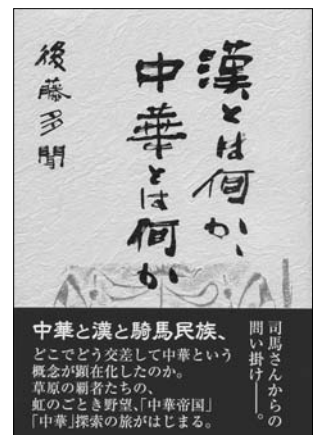 漢とは何か、
中華とは何か
後藤多聞
司馬さんからの
問い掛け――。
中華と漢と騎馬民族、
どこでどう交差して中華という
概念が顕在化したのか。
草原の覇者たちの、
虹のごとき野望、「中華帝国」
「中華」探索の旅がはじまる。